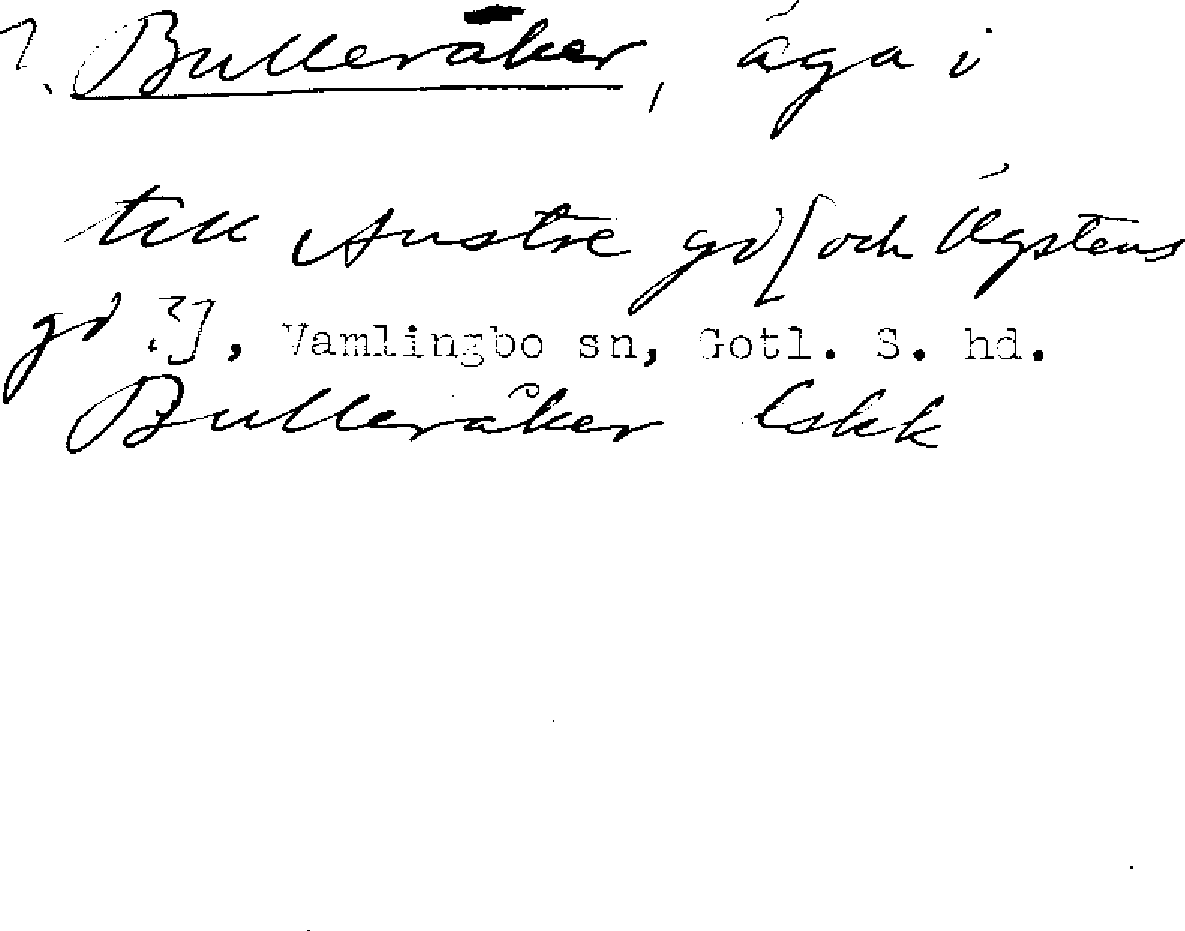 ?. Bulleråker, äga i
till Austre gd [och Ägstens
gd ?], Vamlingbo sn, Gotl. S. hd.
Bulleråker lskk